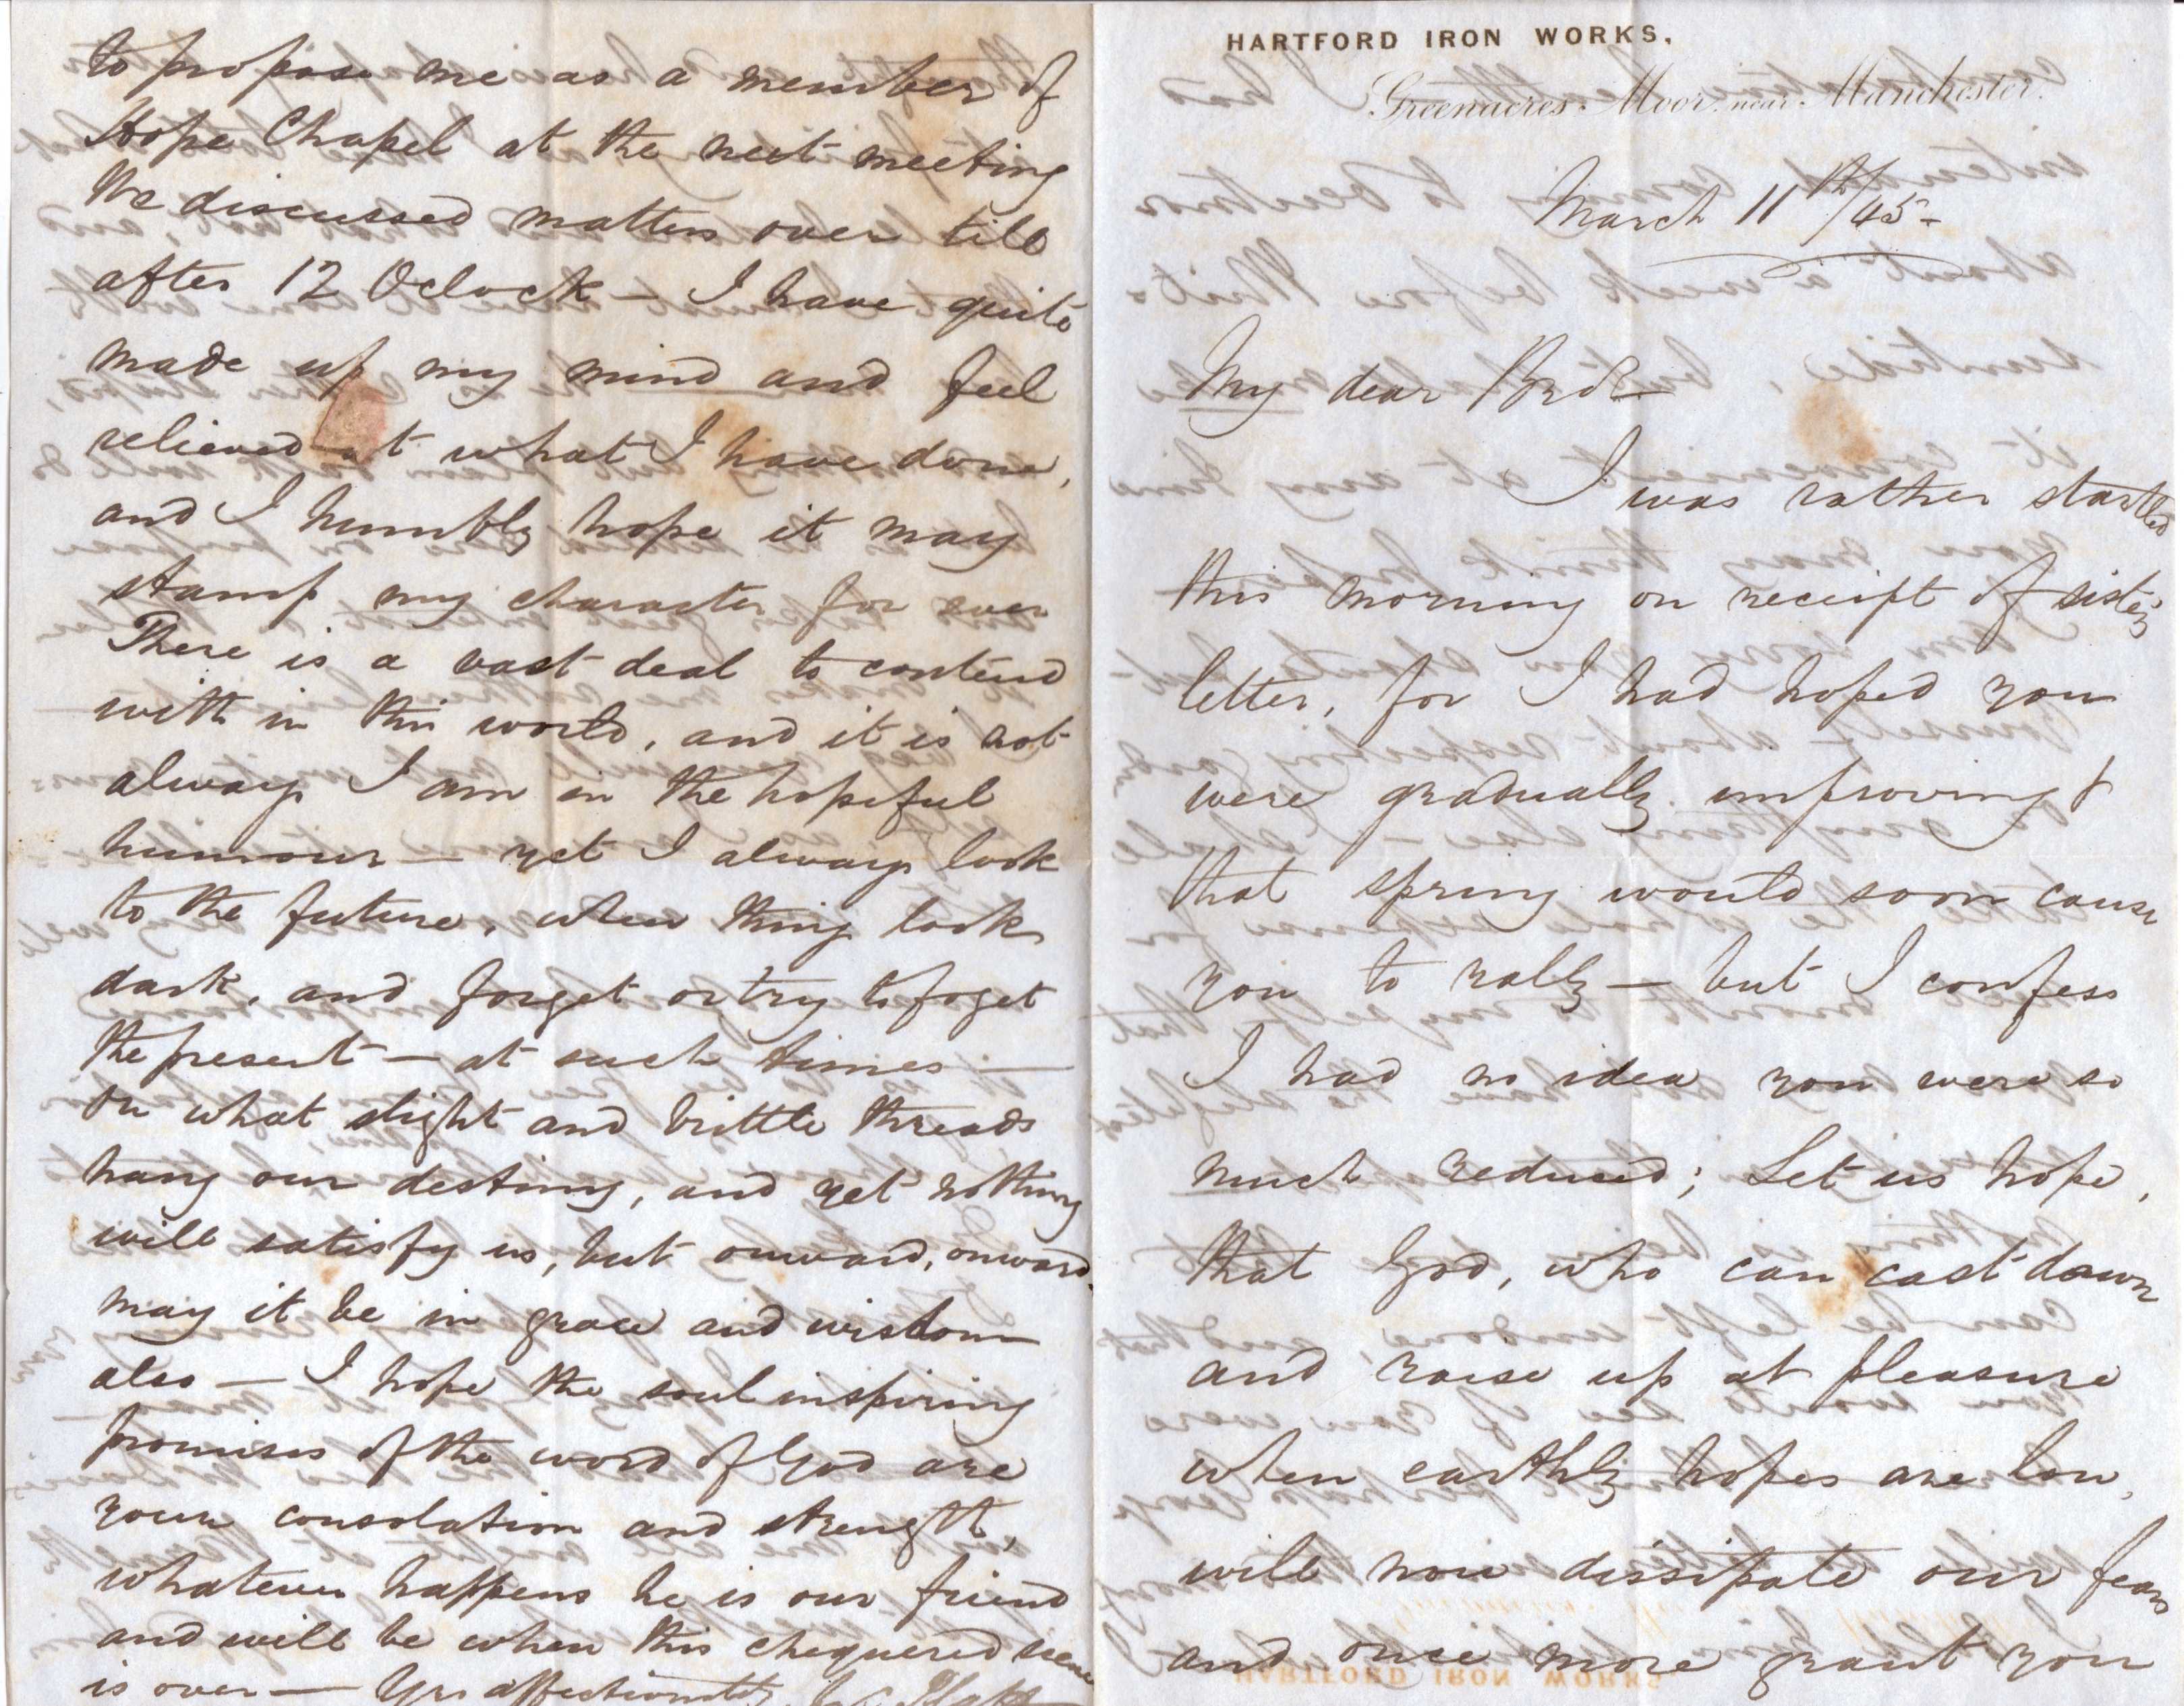 HARTFORD IRON WORKS,
Greenacres Moor, near Manchester.
March 11th/45-
My dear Bro
I was rather startled
this morning on receipt of sister's
letter, for I had hoped you
were gradually improving &
that spring would soon cause
you to rally — but I confess
I had no idea you were so
much reduced; Let us hope,
that God, who can cast down
and raise up at pleasure
when earthly hopes are low,
will now dissipate our fears
and once more grant you
to propose me as a member of
Hope Chapel at the next meeting
We discussed matters over till
after 12 Oclock — I have quite
made up my mind and feel
relieved at what I have done,
and I humbly hope it may
stamp my character for ever
There is a vast deal to contend
with in this world, and it is not
always I am in the hopeful
humour — yet I always look
to the future, when things look
dark, and forget or try to foget
the present — at such times —
on what slight and brittle threads
hang our destiny, and yet nothing
will satisfy us, but onward, onward.
may it be in grace and wisdom
also — I hope the soul inspiring
promises of the word of God are
your consolation and strength,
whatever happens he is our friend
and will be when this chequered scene
is over — Yrs affectionately